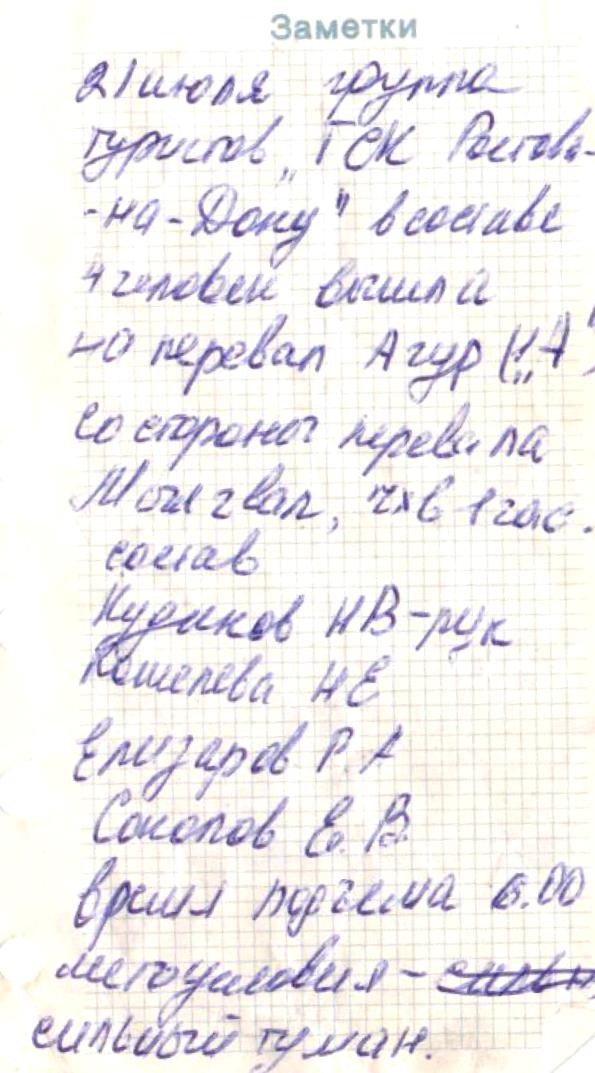 Заметки
21 июля группа
туристов „ГСК Ростова-
-на-Дону" в составе
4 человек вышла
на перевал Агур (1А
со стороны перевала
, ч/в 1 час.
состав
Кудинов НВ-рук
Кошелева НЕ
Елизаров Р.А
Соколов Е.В.
время подъема 6.00
метоусловия -
сильный туман.